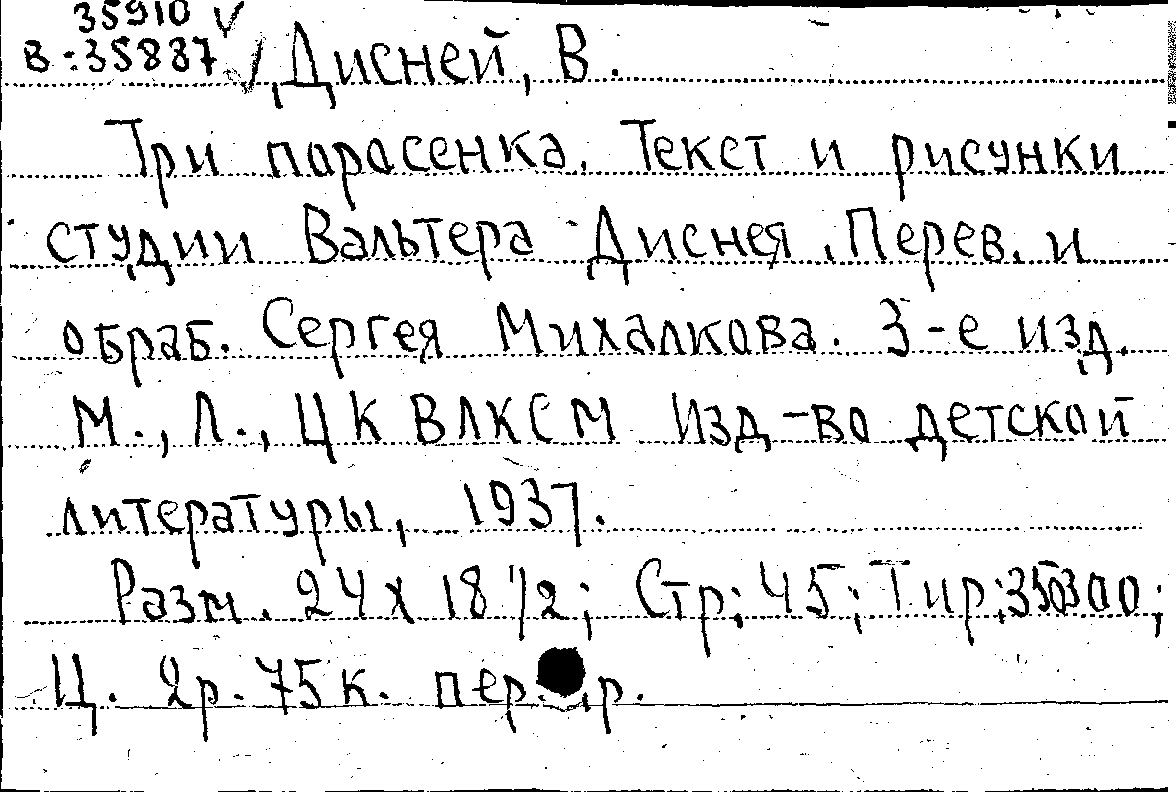 35910 √
В:35887 √ Дисней, В.
Три парасенка. Текст и рисунки
студии Вальтера Диснея. Перев. и
обраб. Сергея Михалкова. 3-е изд.
М., Л., ЦК ВЛКСМ Изд-во детской
литературы, 1937.
Разм. 24х18 1/2; Стр; 45; Тир;
Ц. 2р.75к. пер. р.